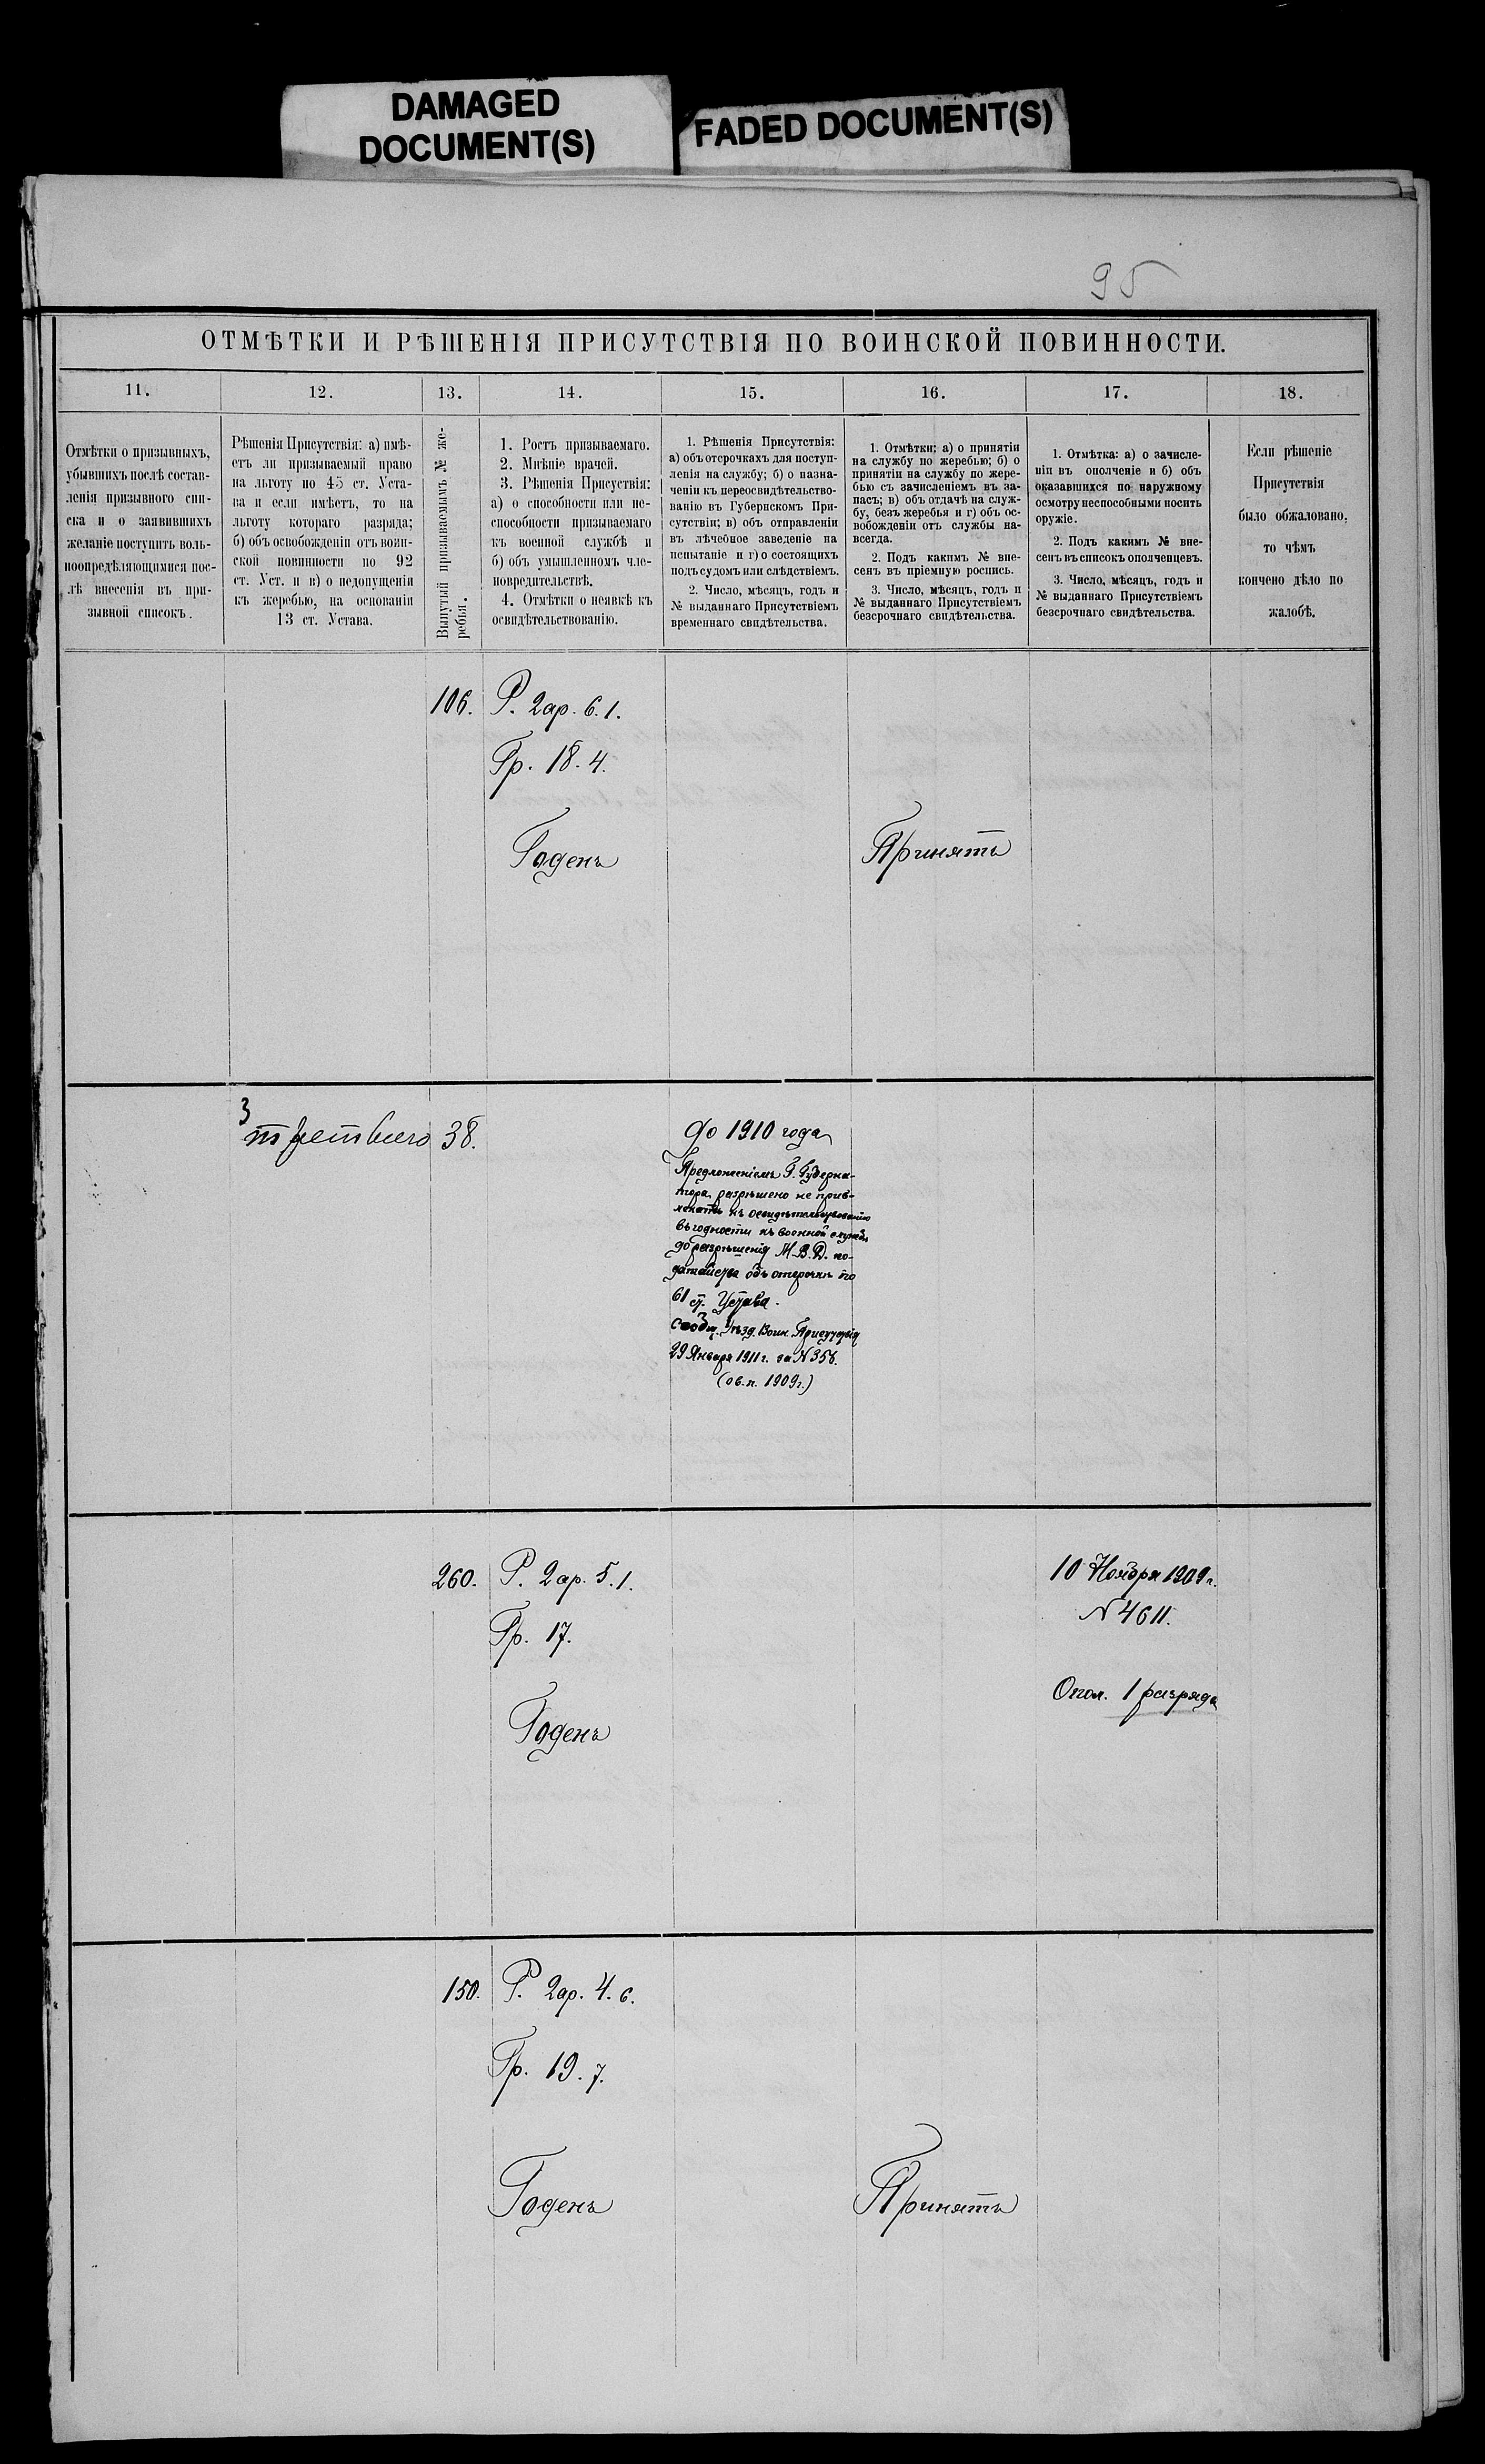 DAMAGED
DOCUMENT(S)
FADED DOCUMENT(S)
95
ОТМѢТКИ И РѢШЕНІЯ ПРИСУТСТВІЯ ПО ВОИНСКОЙ ПОВИННОСТИ.
11.
12.
13.
14.
15.
16.
17.
18.
Отмѣтки о призывныхъ,
убывшихъ послѣ состав-
ленія призывного спи-
ска и о заявившихъ
желаніе поступить воль-
ноопредѣляющимися пос-
лѣ внесенія въ при-
зывной списокъ.
Рѣшенія Присутствія: а) имѣ-
етъ ли призываемый право
на льготу по 45 ст. Уста-
ва и если имѣетъ, то на
льготу котораго разряда;
б) объ освобожденіи отъ воин-
ской повинности по 92
ст. Уст. и в) о недопущеніи
къ жеребью, на основаніи
13 ст. Устава.
Вынутый призываемымъ № же-
ребья.
1. Ростъ призываемаго.
2. Мнѣніе врачей.
3. Рѣшенія Присуствія:
а) о способности или не-
способности призываемаго
къ военной службѣ и
б) объ умышленномъ чле-
новредительствѣ.
4. Отмѣтки о неявкѣ къ
освидѣтельствованію.
1. Рѣшенія Присутствія:
а) объ отсрочкахъ для поступ-
ленія на службу; б) о назна-
ченіи къ переосвидѣтельство-
ванію въ Губернскомъ При-
сутствіи; в) объ отправленіи
въ лѣчебное заведеніе на
испытаніе и г) о состоящихъ
подъ судомъ или слѣдствіемъ.
2. Число, мѣсяцъ, годъ и
№ выданнаго Присутствіемъ
временнаго свидѣтельства.
1. Отмѣтки: а) о принятіи
на службу по жеребью; б) о
принятіи на службу по жере-
бью съ зачисленіемъ въ за-
пасъ; в) объ отдачѣ на служ-
бу, безъ жеребья и г) объ ос-
вобожденіи отъ службы на-
всегда.
2. Подъ какимъ № вне-
сенъ въ пріемную роспись.
3. Число, мѣсяцъ, годъ и
№ выданнаго Присутствіемъ
безсрочнаго свидѣтельства.
1. Отмѣтка: а) о зачисле-
ніи въ ополченіе и б) объ
оказавшихся по наружному
осмотру неспособными носить
оружіе.
2. Подъ какимъ № вне-
сенъ въ списокъ ополченцевъ.
3. Число, мѣсяцъ, годъ и
№ выданнаго Присутствіемъ
безсрочнаго свидѣтельства.
Если рѣшеніе
Присутствія
было обжаловано,
то чѣмъ
кончено дѣло по
жалобѣ.
106.
Р. 2 ар. 6. 1.
Гр. 18. 4.
Годенъ
Принятъ
3
третьяго
38.
До 1910 года
Предложеніемъ Г. Губерна-
тора разрѣшено не прив-
лекать къ освидѣтельствованію
въ годности къ военной службѣ
до разрѣшенія М. В. Д. хо-
датайства объ отсрочкѣ по
61 ст. Устава.
Сообщ. Уѣзд. Воин. Присутствія
29 Января 1911 г. за N 356.
1909 г.)
260.
Р. 2 ар. 5. 1.
Гр. 17.
Годенъ
10 Ноября 1909 г.
N 4611.
Опол. 1 разряда
150.
Р. 2 ар. 4. 6.
Гр. 19. 7.
Годенъ
Принятъ